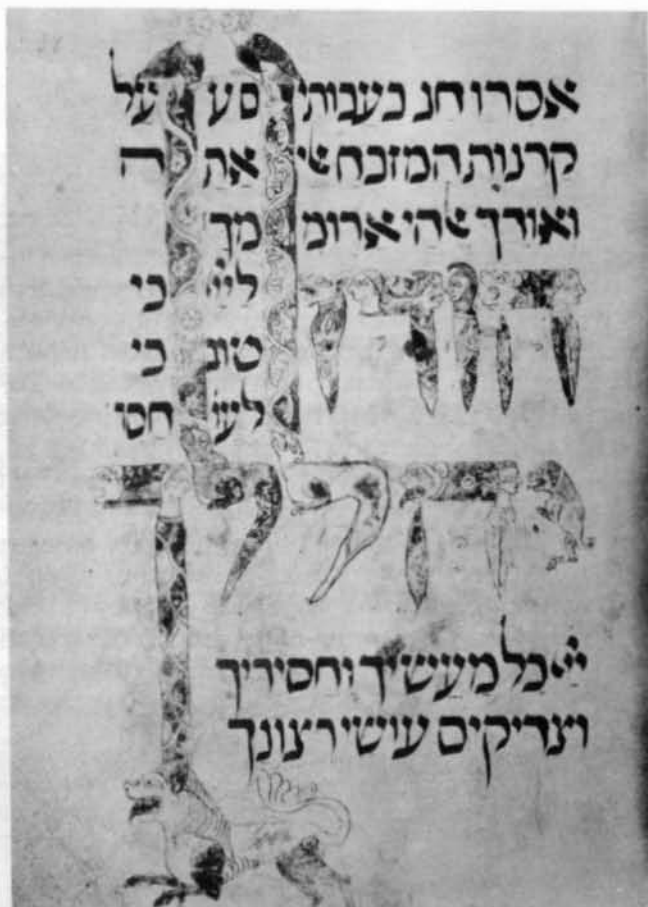 אסרו חג בעבותי ם ע עד
קרנות המזבח ﭏי את ה
ואודך ﭏהי ארומ מך
הודו ליי כי
טוב כי
לעו חס'
יהללוך
יי כל מעשיך וחסידיך
וצדיקים עושי רצונך